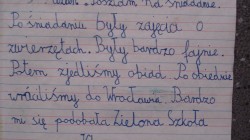 Poszłam na śniadanie.
Po śniadaniu były zajęcia o
zwierzętach. Były bardzo fajne.
Potem zjedliśmy obiad. Po obiedzie
wróciliśmy do Wrocławia. Bardzo
mi się podobała Zielona Szkoła